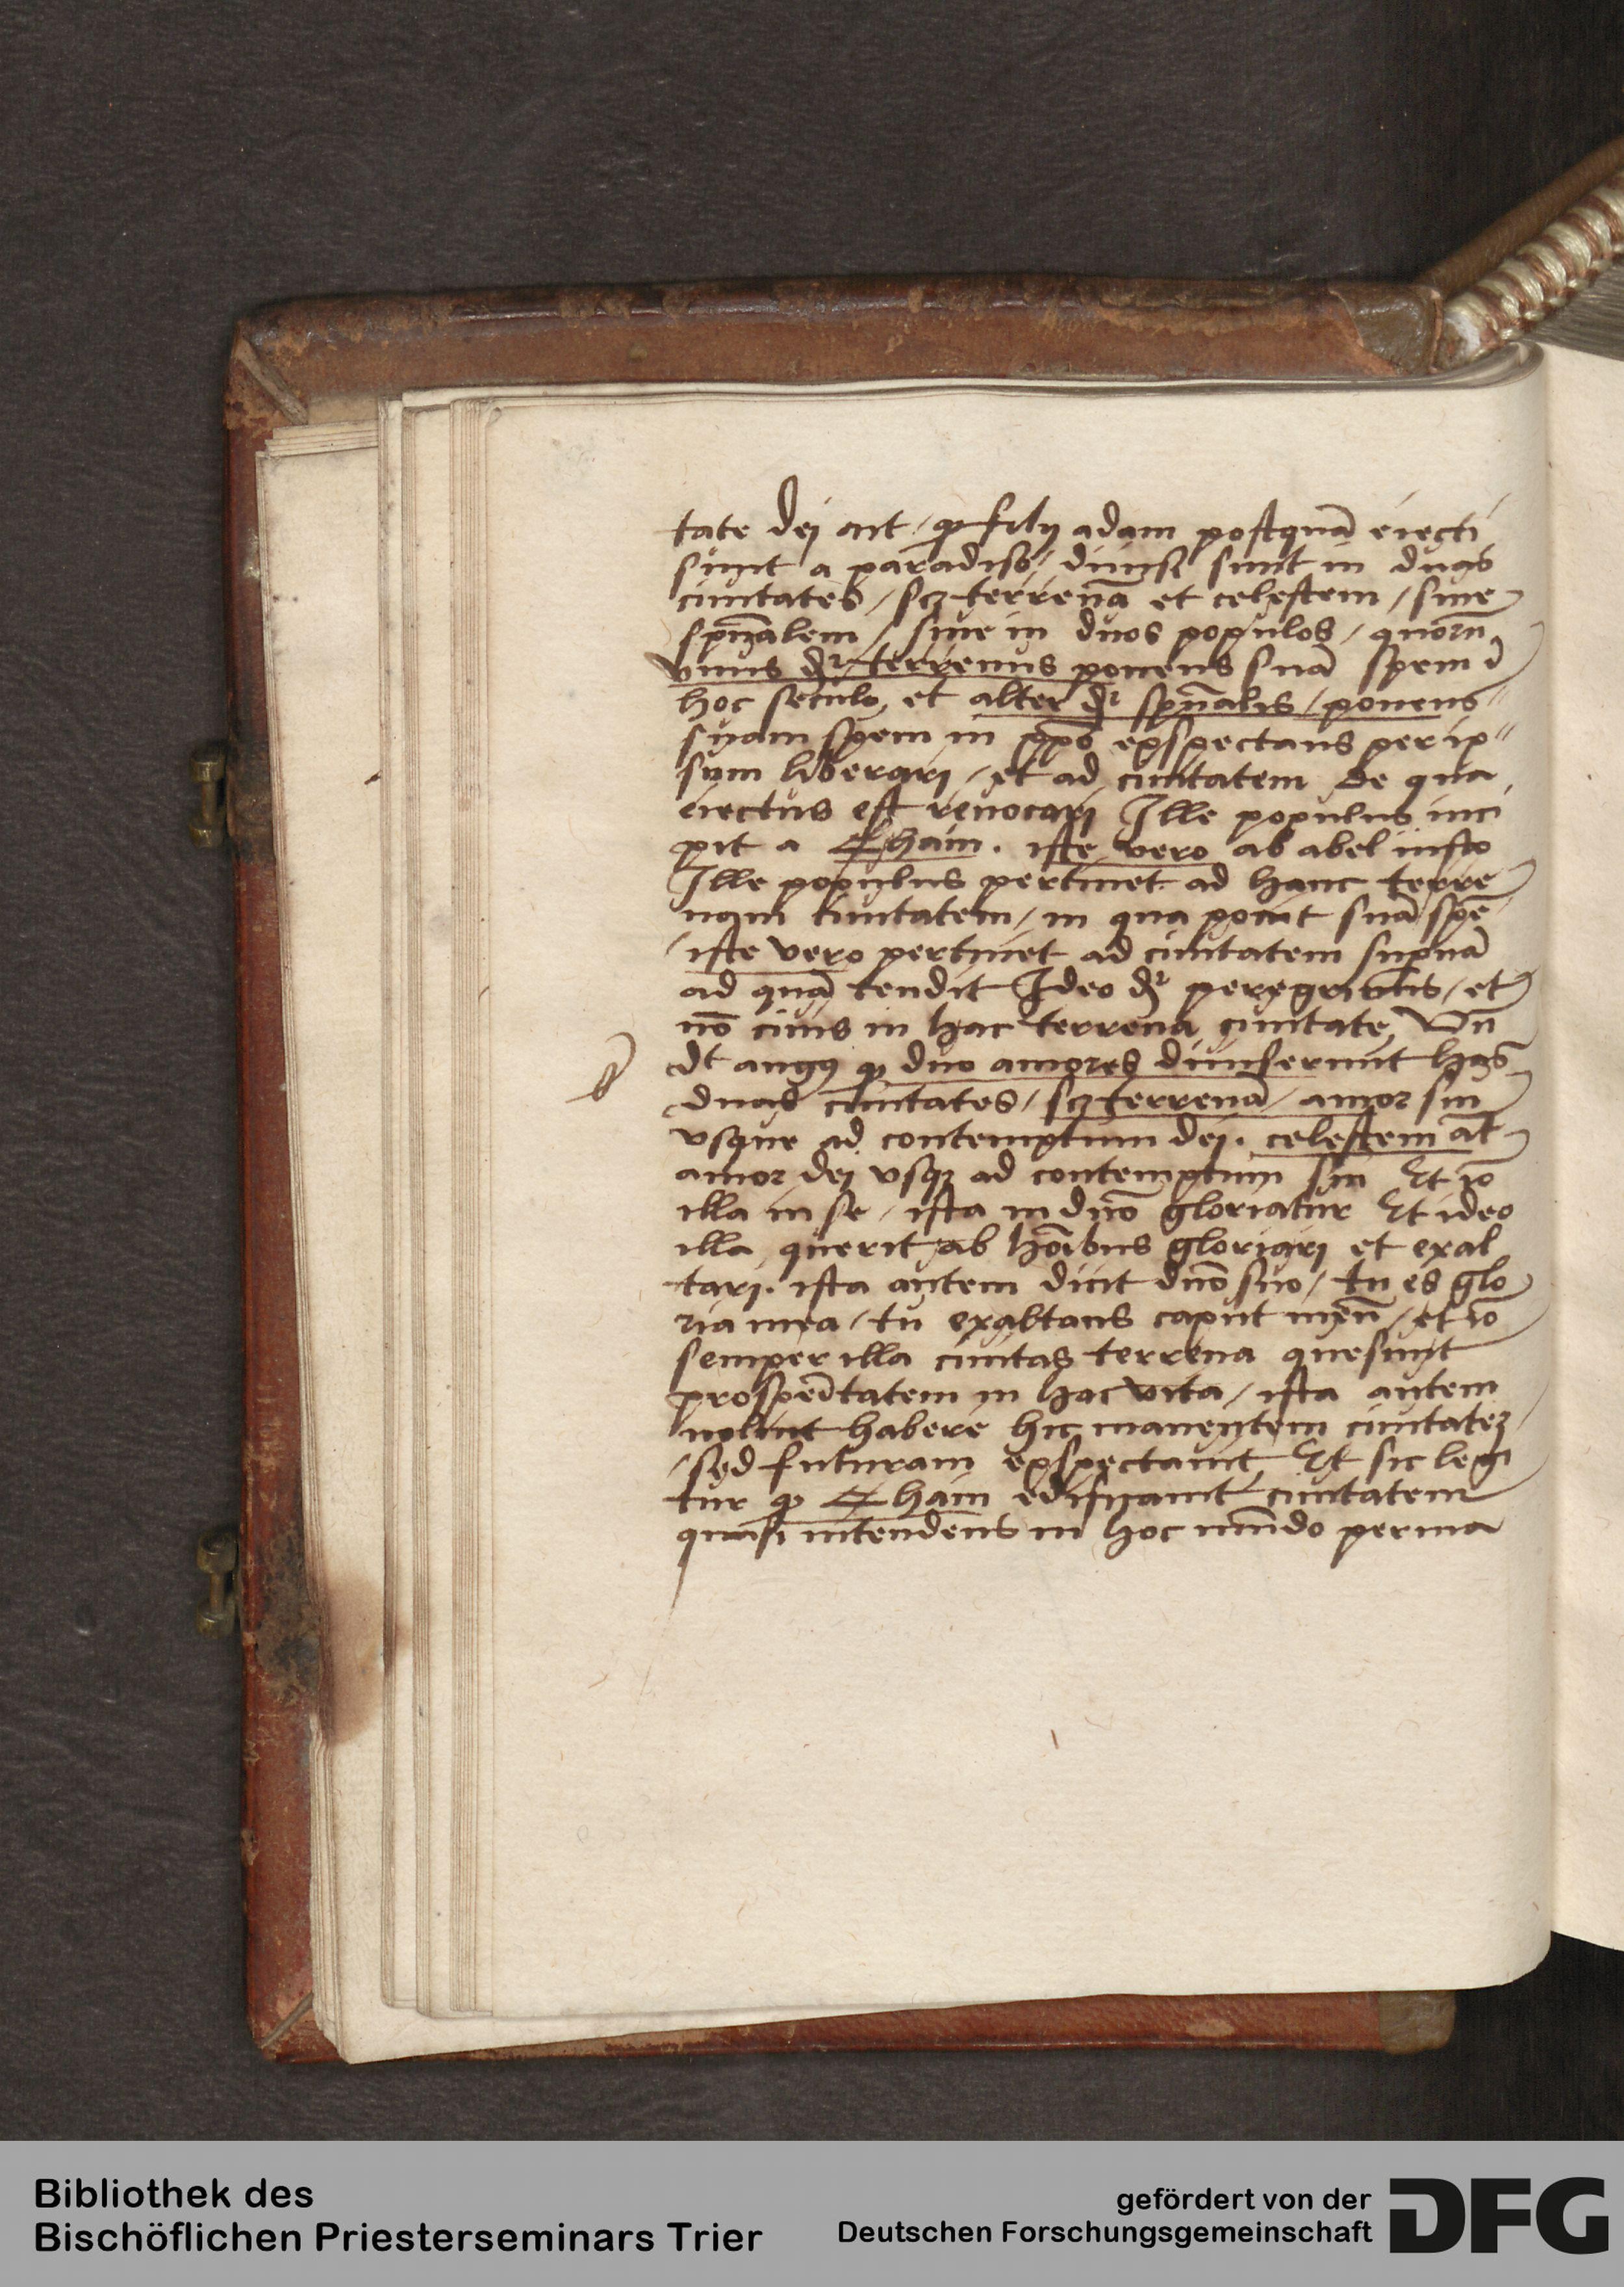 tate dej ait / qͥ filij adam postquā eiecti
sunt a paradiso / diuisi sunt in duas
ciuitates / scz terrenā et celestem / siue
spūalem / siue in duos populos / quorū
vnus dr̄ terrenus ponens suā spem ī
hoc seculo, et alter dr̄ spūalis / ponens
suam spem in xp̄o expectans per ip"
sum liberari / et ad ciuitatem de qua
eiectus est reuocari Ille populus inci
pit a Chain . iste vero ab abel iusto
Ille populus pertinet ad hanc terre
nam ciuitatem / in qua ponit suā spē
/ iste vero pertinet ad ciuitatem supnā
ad quā tendit Ideo dr̄ / et
nō ciuis in hac terrena ciuitate Vn̄
dt augꝰ qͥ duo amores diuiserunt has
duas ciuitates / scz terrenā / amor sui
vsque ad contemptum dei . celestem āt
amor dej vsqꝫ ad contemptum sui Et iō
illa in se / ista in dn̄o gloriatur Et ideo
illa querit ab hōibus gloriari et exal
tari . ista autem dicit dn̄o suo / tu es glo
ria mea / tu exaltans caput meū / et iō
semper illa ciuitas terrena quesiuit
prosperitatem in hac vita / ista autem
noluit habere hic manentem ciuitatē
/ sed futuram expectauit Et sic legi
tur qͥ Chain edificauit ciuitatem
quasi intendens in hoc mūdo perma
Bibliothek des
Bischöflichen Priesterseminars Trier
gefördert von der
Deutschen Forschungsgemeinschaft
DFG